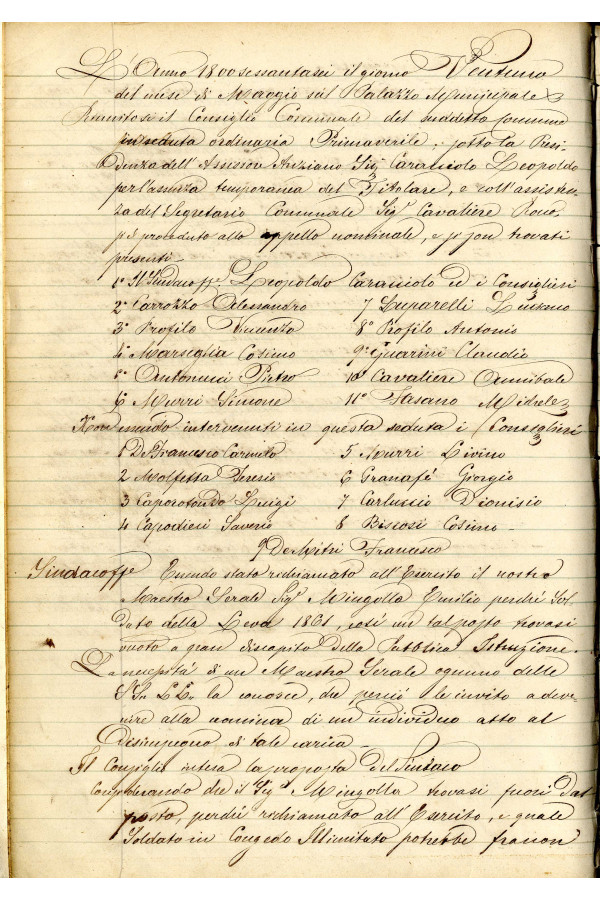 L'Anno 1800sessantasei il giorno Ventuno
del mese di Maggio sul Palazzo Municipale
Riunitosi il Consiglio Comunale del suddetto Comune
in seduta ordinaria Primaverile, sotto la Presi-
denza dell'Assessore Anziano Sigr Caracciolo Leopoldo
per l'assenza temporanea del Titolare, e coll'assisten-
za del Segretario Comunale Sigr Cavaliere Rocco,
si è proceduto allo appello nominale, e si son trovati
presenti
1° Il Sindaco ff. Leopoldo Caracciolo ed i Consiglieri
2° Carrozzo Alessandro 7 Luparelli
3° Profilo Vincenzo 8° Profilo Antonio
4° Marseglia Cosimo 9° Guarini Claudio
5° Antonucci Pietro 10° Cavaliere Annibale
6 Murri Simone 11° Fasano Michele
Non essendo intervenuti in questa seduta i Consiglieri
1 De Francesco Carmelo 5 Murri Livino
2 Molfetta Teresio 6 Granafé Giorgio
3 Caporotondo Luigi 7 Carluccio Dionisio
4 Capodieci Saverio 8 Biscosi Cosimo
9 De Mitri Francesco
Sindaco ff. Essendo stato richiamato all'Esercito il nostro
Maestro Serale Sigr Mingolla Emilio perché Sol-
dato della Leva 1861, così un tal posto trovasi
vuoto a gran discapito della Pubblica Istruzione.
La necessità di un Maestro Serale ognuno delle
LL. la conosce, che perciò le invito a deve-
nire alla nomina di un individuo atto al
disimpegno di tale carica
Il Consiglio intesa la proposta del Sindaco
Considerando che il Sigr Mingolla trovasi fuori dal
posto, perché richiamato all'Esercito, e quale
Soldato in Congedo Illimitato potrebbe